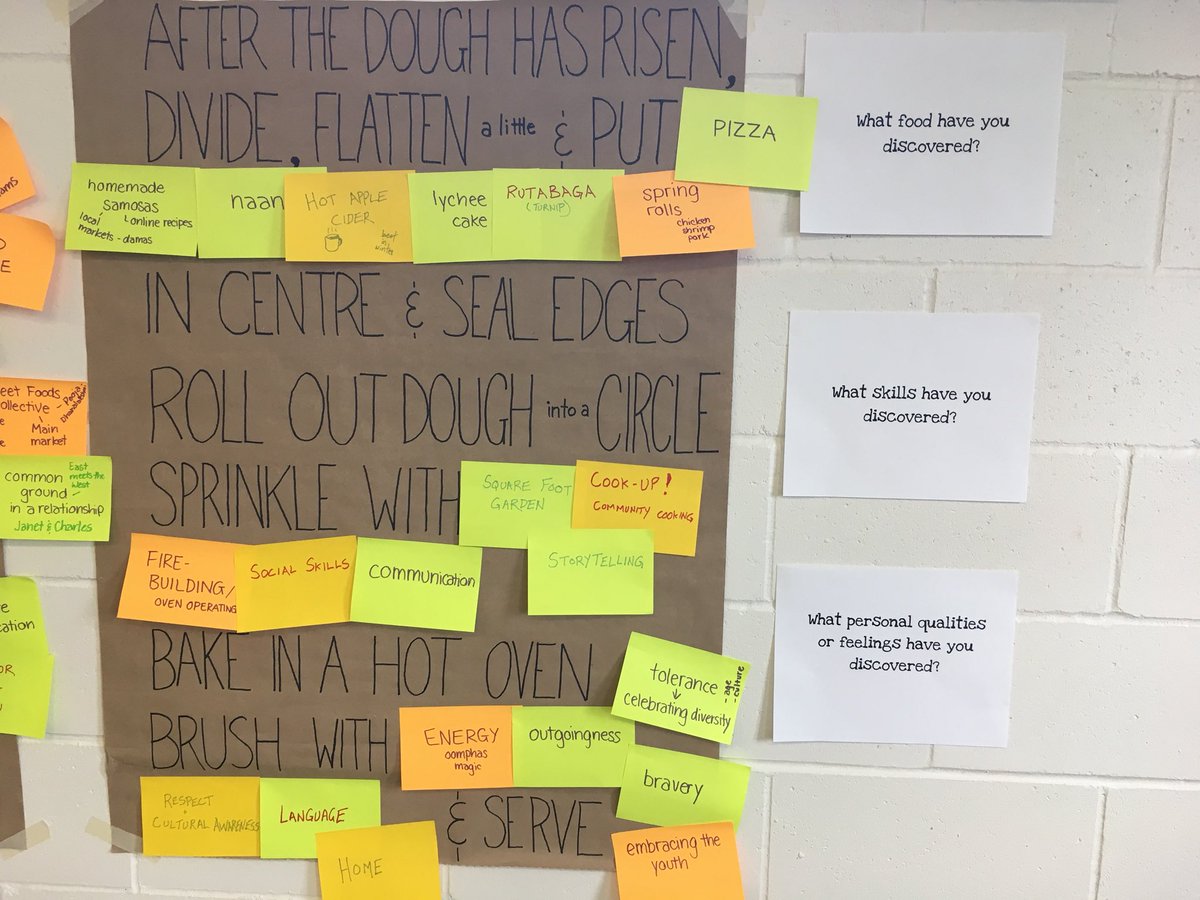 AFTER THE DOUGH HAS RISEN,
DIVIDE, FLATTEN a little & PUT
PIZZA
homemade
samosas
local
markets - damas
online recipes
naan
HOT APPLE
CIDER
best
in
winter
lychee
cake
RUTABAGA
(TURNIP)
spring
rolls
chicken
shrimp
pork
IN CENTRE & SEAL EDGES
ROLL OUT DOUGH into a CIRCLE
SPRINKLE WITH
SQUARE FOOT
GARDEN
COOK-UP!
COMMUNITY COOKING
FIRE-
BUILDING/
OVEN OPERATING
SOCIAL SKILLS
communication
STORYTELLING
BAKE IN A HOT OVEN
tolerance
celebrating diversity
- age
- culture
BRUSH WITH
ENERGY
oomphas
magic
outgoingness
bravery
RESPECT
+
CULTURAL AWARENESS
LANGUAGE
HOME
& SERVE
embracing the
youth
What food have you
discovered?
What skills have you
discovered?
What personal qualities
or feelings have you
discovered?
eet Foods
ollective
Main
market
common
ground -
in a relationship
Janet & Charles
East
meets the
West